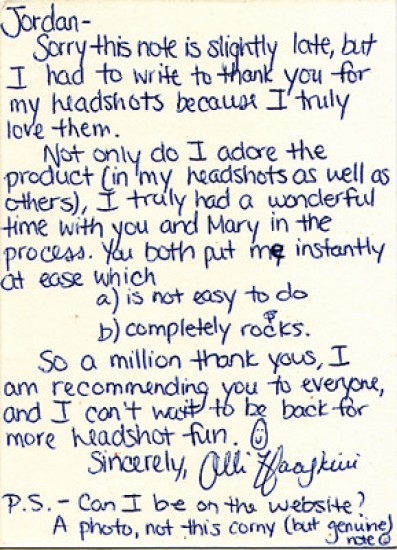 Jordan-
Sorry this note is slightly late, but
I had to write to thank you for
my headshots because I truly
love them.
Not only do I adore the
product (in my headshots as well as
others), I truly had a wonderful
time with you and Mary in the
process. You both put me instantly
at ease which
a) is not easy to do
b) completely rocks.
So a million thank yous, I
am recommending you to everyone,
and I can't wait to be back for
more headshot fun.
Sincerely, Alli
P.S. - Can I be on the website?
A photo, not this corny (but genuine)
note